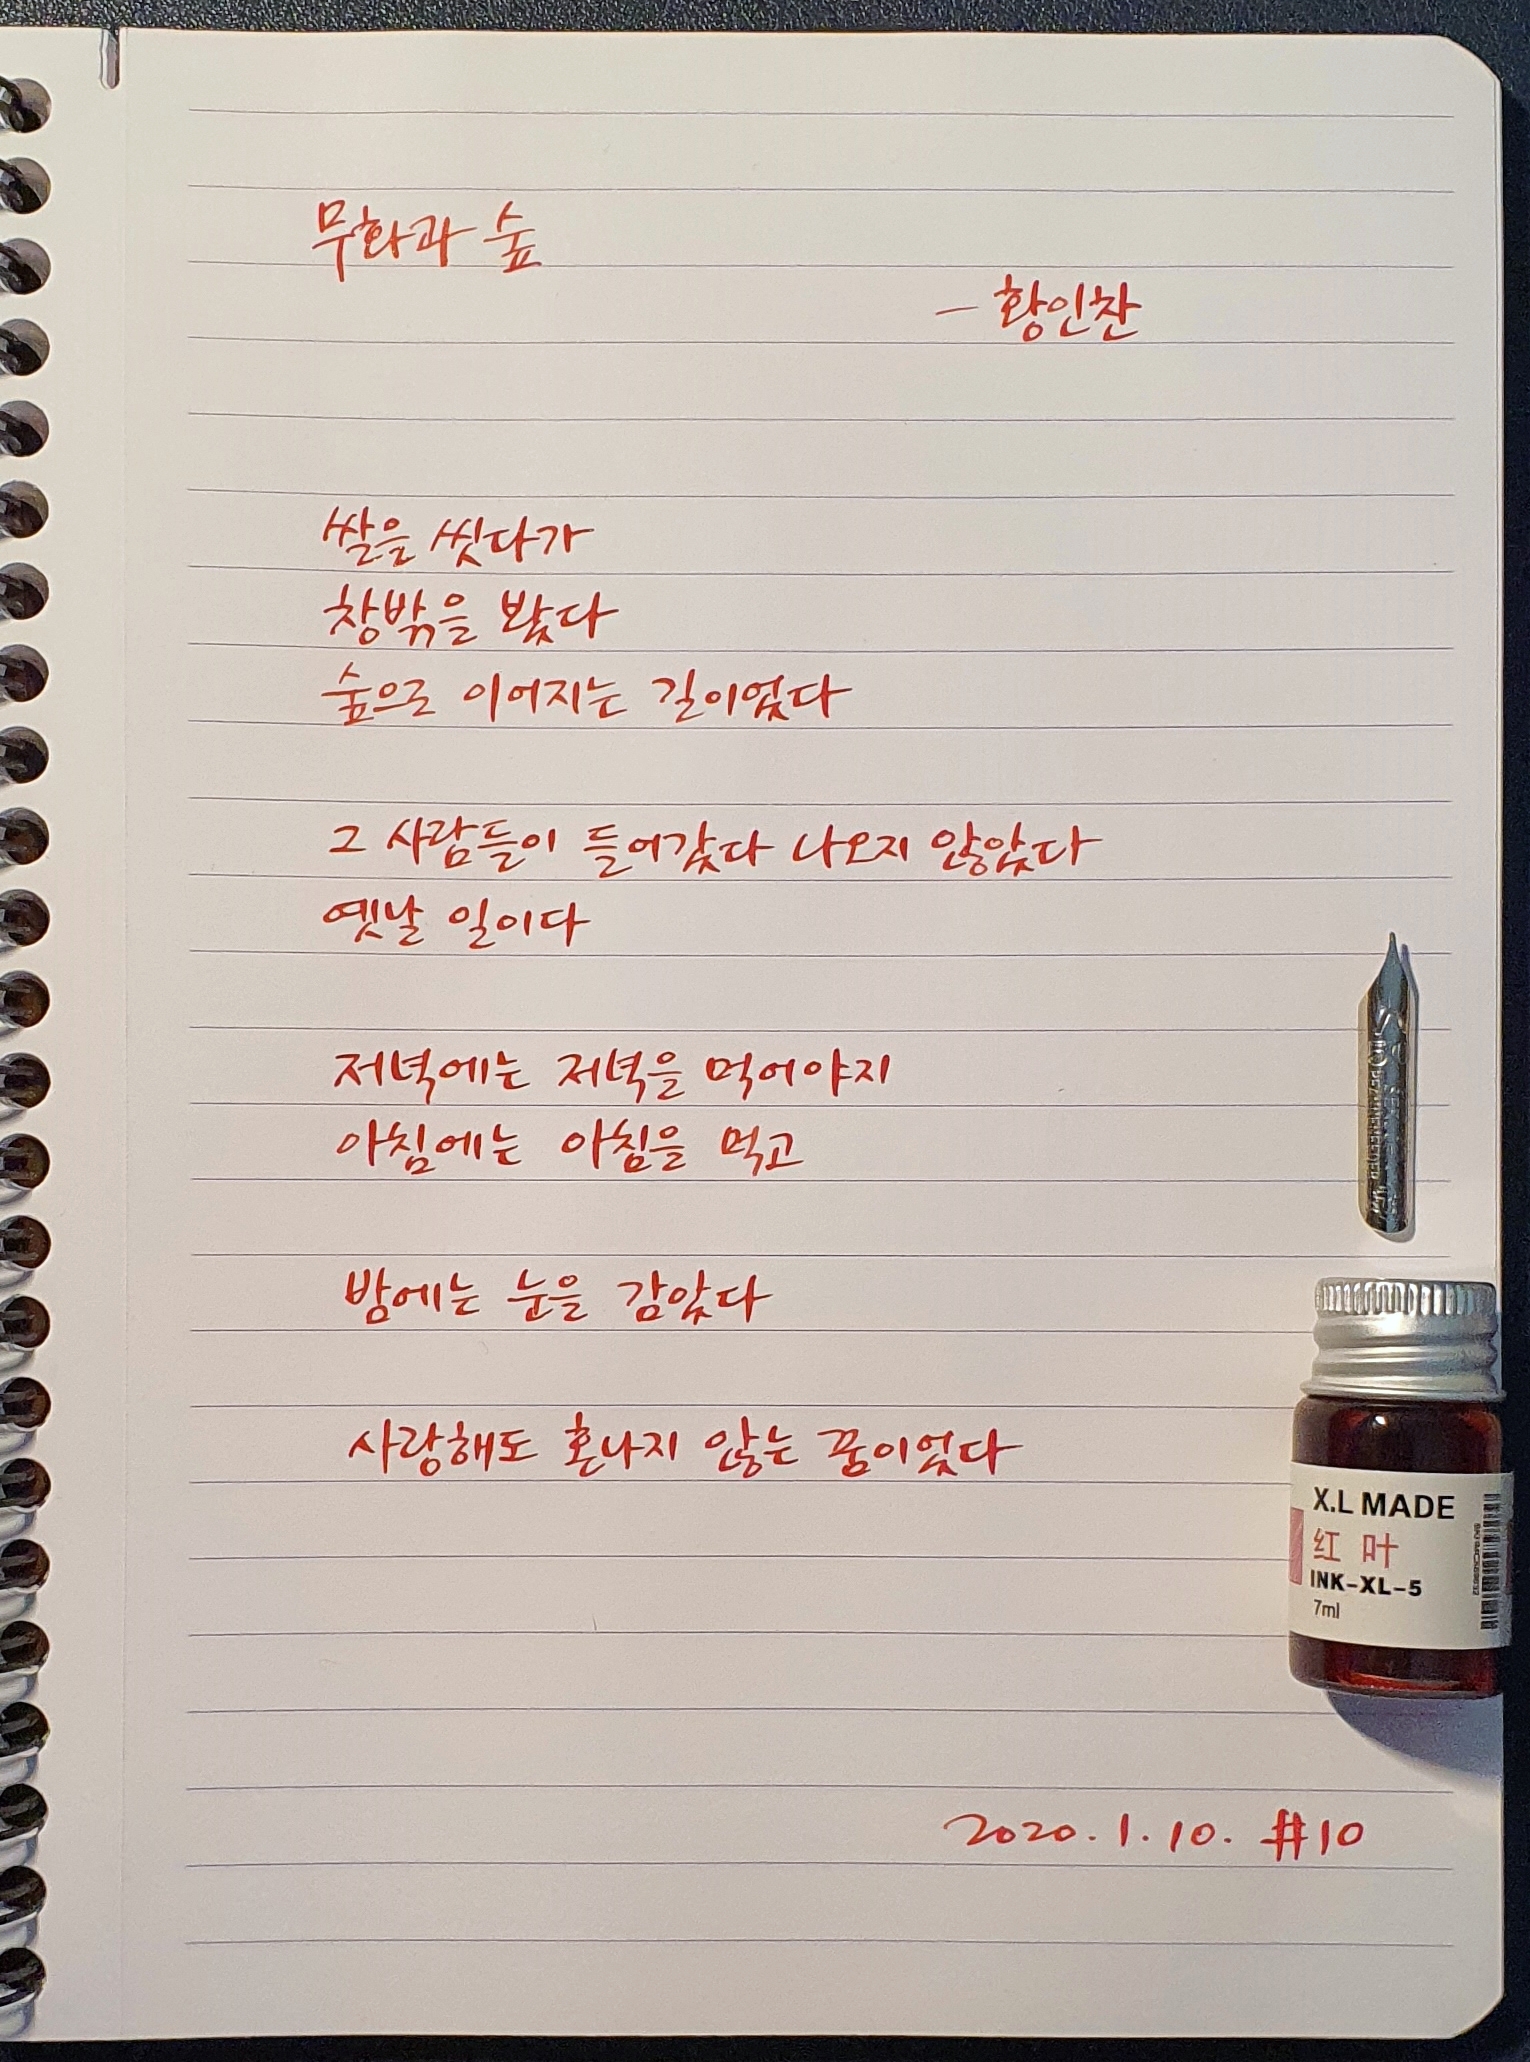 무화과 숲
- 황인찬
쌀을 씻다가
창밖을 봤다
숲으로 이어지는 길이었다
그 사람들이 들어갔다 나오지 않았다
옛날 일이다
저녁에는 저녁을 먹어야지
아침에는 아침을 먹고
밤에는 눈을 감았다
사랑해도 혼나지 않는 꿈이었다
X.L MADE
红叶
INK-XL-5
7ml
2020.1.10. #10